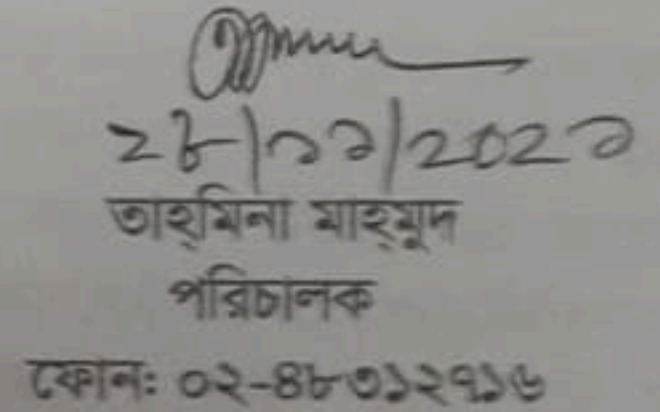 ২৮/১১/২০২১
তাহ্‌মিনা মাহ্‌মুদ
পরিচালক
ফোনঃ ০২-৪৮৩১২৭১৬